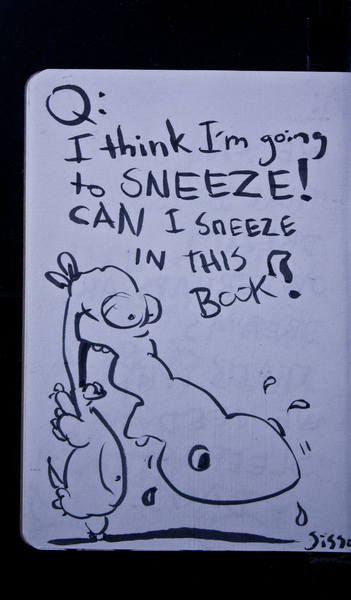 Q:
I think I'm going
to SNEEZE!
CAN I SNEEZE
IN THIS
BOOK?